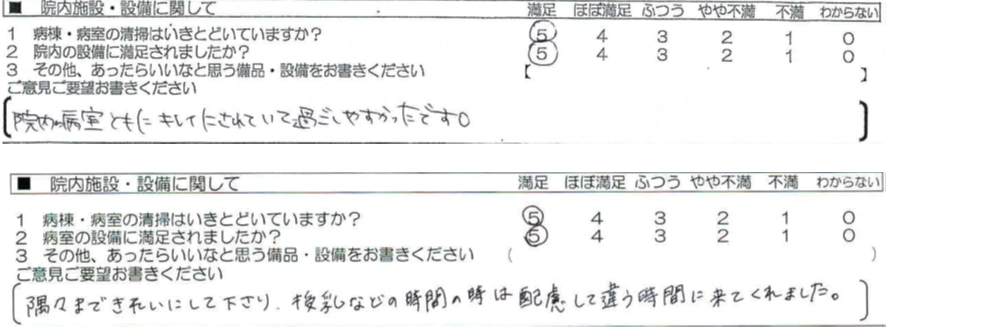 ■ 院内施設・設備に関して 満足 ほぼ満足 ふつう やや不満 不満 わからない
1 病棟・病室の清掃はいきとどいていますか? 5 4 3 2 1 0
2 院内の設備に満足されましたか? 5 4 3 2 1 0
3 その他、あったらいいなと思う備品・設備をお書きください【 】
ご意見ご要望お書きください
院内、病室ともにキレイにされていて過ごしやすかったです。
■ 院内施設・設備に関して 満足 ほぼ満足 ふつう やや不満 不満 わからない
1 病棟・病室の清掃はいきとどいていますか? 5 4 3 2 1 0
2 病室の設備に満足されましたか? 5 4 3 2 1 0
3 その他、あったらいいなと思う備品・設備をお書きください ( )
ご意見ご要望お書きください
隅々まできれいにして下さり、授乳などの時間の時は配慮して違う時間に来てくれました。